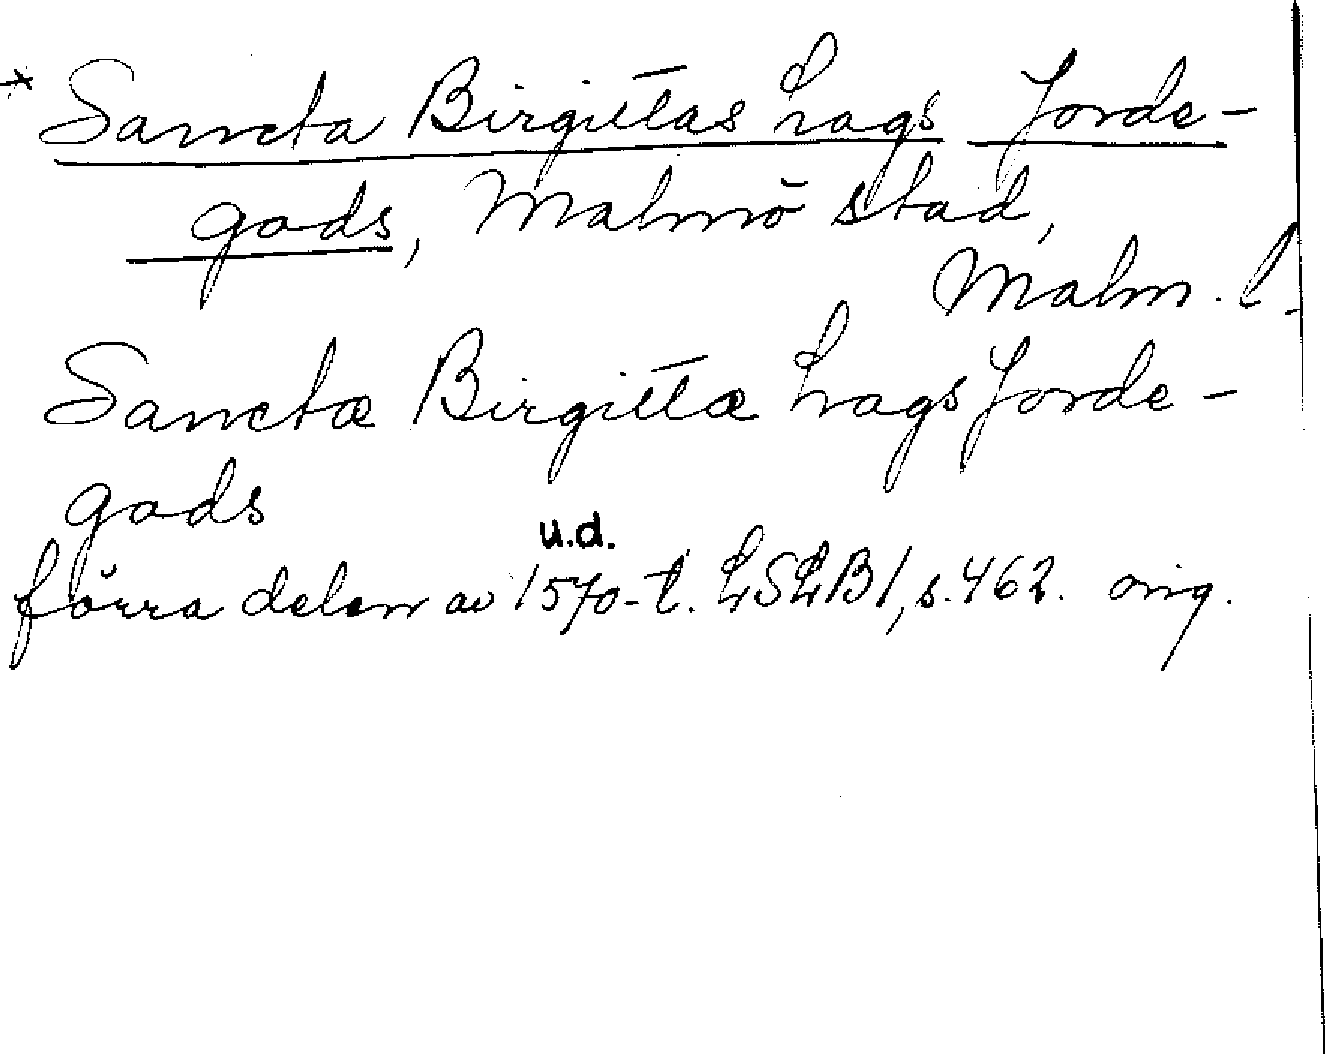 * Sancta Birgittas Lags Jorde-
gods, Malmö stad,
Malm. l.
Sanctæ Birgittæ Lags Jorde-
gods
u.d.
förra delen av 1570-t. LSLB1, s. 462. orig.